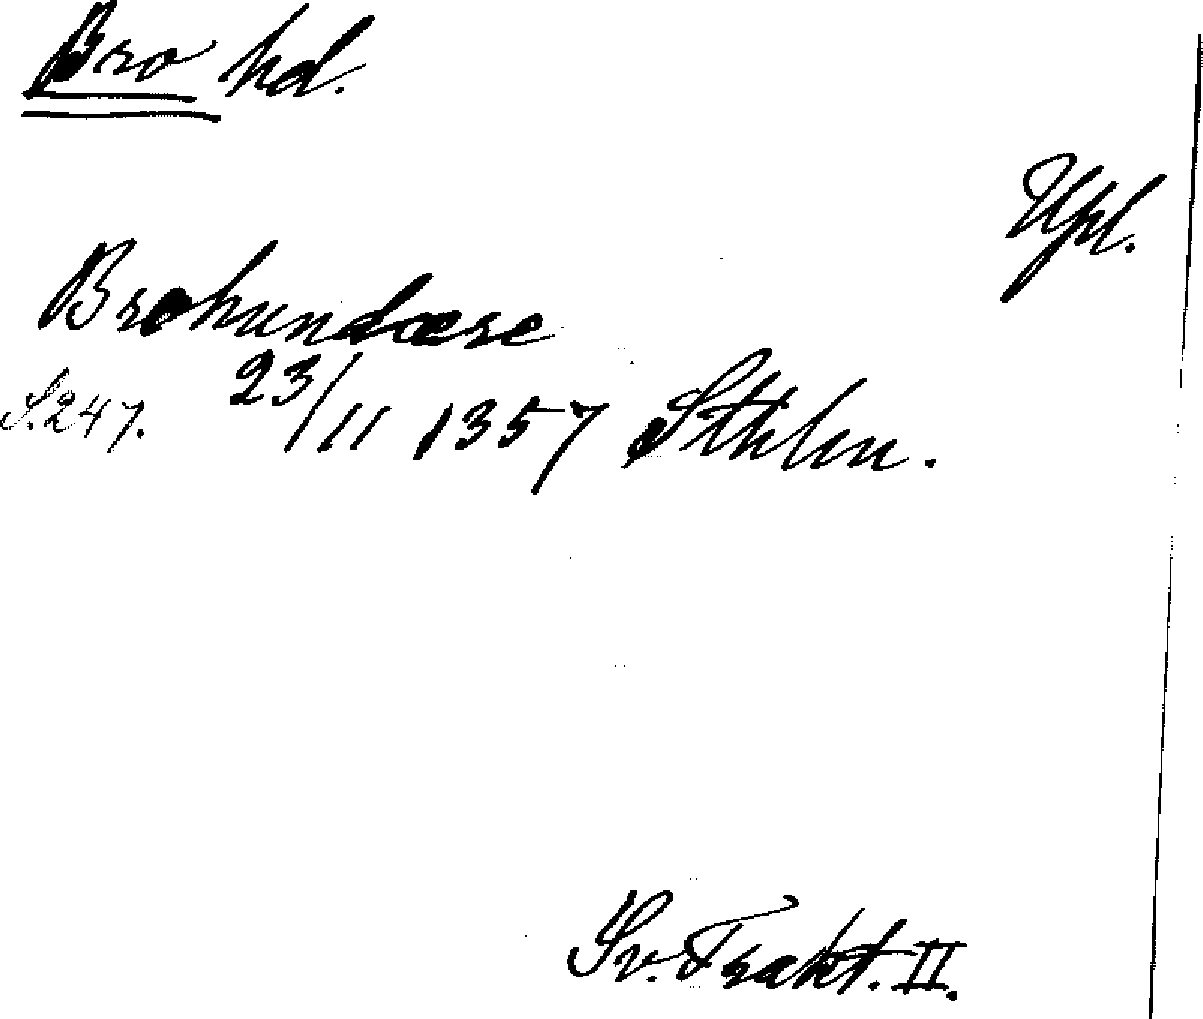 Bro hd.
Upl.
Brohundære
S. 247. 23/11 1357 Sthlm.
Sv. Trakt. II.